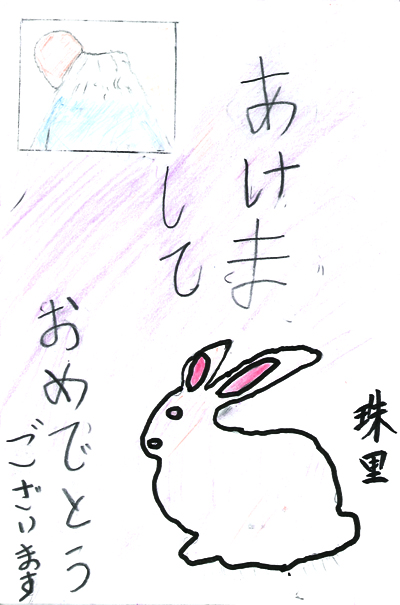 あけま
して
おめでとう
ございます
珠里